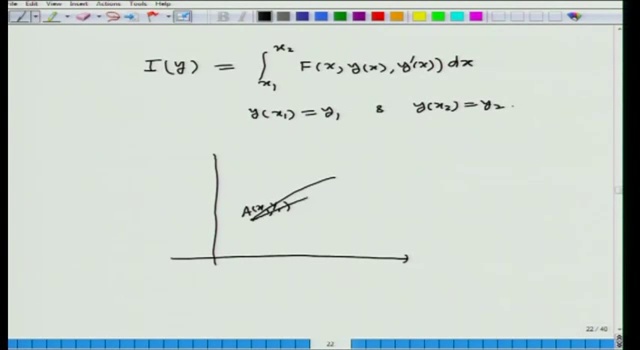 File Edit View Insert Actions Tools Help
I(y) = ∫_{x₁}^{x₂} F(x, y(x), y'(x)) dx
y(x₁) = y₁ & y(x₂) = y₂.
22 / 40
22